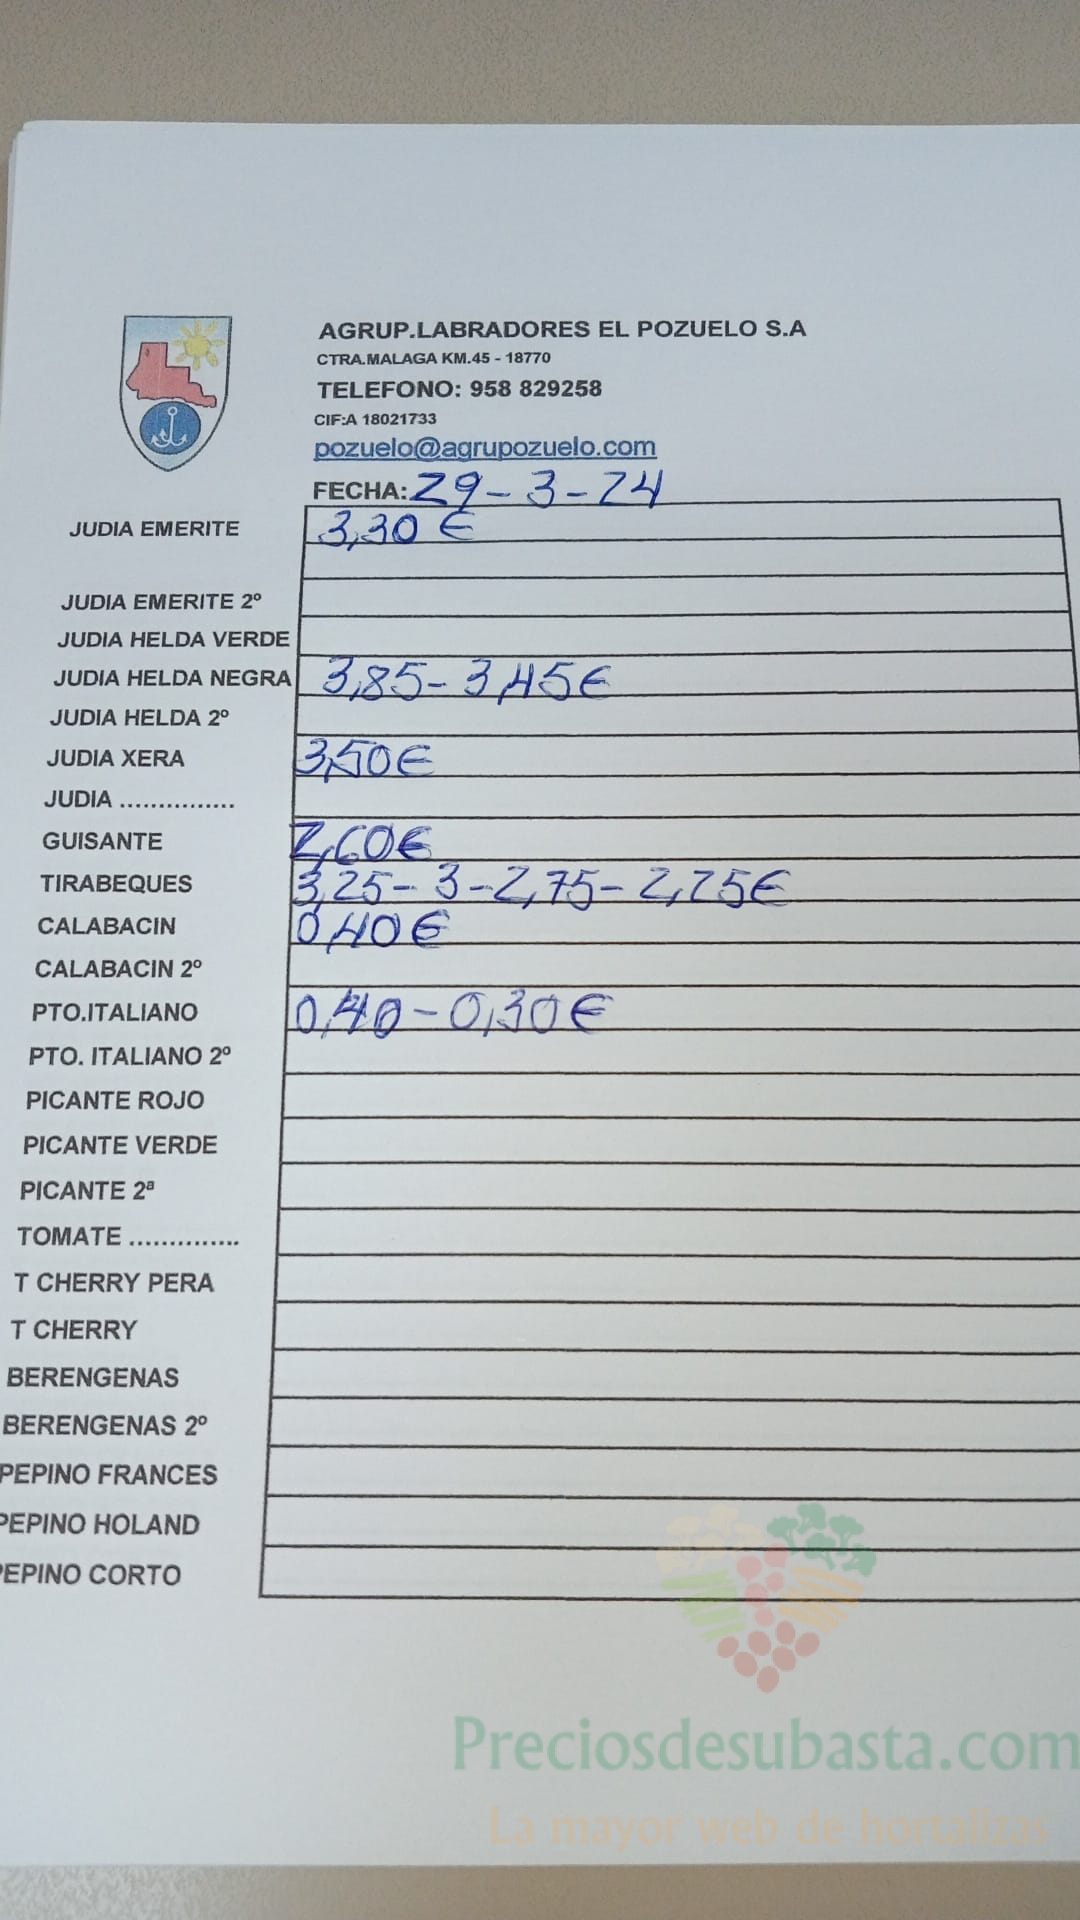 AGRUP.LABRADORES EL POZUELO S.A
CTRA.MALAGA KM.45 - 18770
TELEFONO: 958 829258
CIF:A 18021733
pozuelo@agrupozuelo.com
FECHA: 29-3-24
JUDIA EMERITE 3,30 €
JUDIA EMERITE 2º
JUDIA HELDA VERDE
JUDIA HELDA NEGRA 3,85 - 3,45 €
JUDIA HELDA 2º
JUDIA XERA 3,50 €
JUDIA ...............
GUISANTE 2,60 €
TIRABEQUES 3,25 - 3 - 2,75 - 2,25 €
CALABACIN 0,40 €
CALABACIN 2º
PTO.ITALIANO 0,40 - 0,30 €
PTO. ITALIANO 2º
PICANTE ROJO
PICANTE VERDE
PICANTE 2ª
TOMATE ..............
T CHERRY PERA
T CHERRY
BERENGENAS
BERENGENAS 2º
PEPINO FRANCES
PEPINO HOLAND
PEPINO CORTO
Preciosdesubasta.com
La mayor web de hortalizas